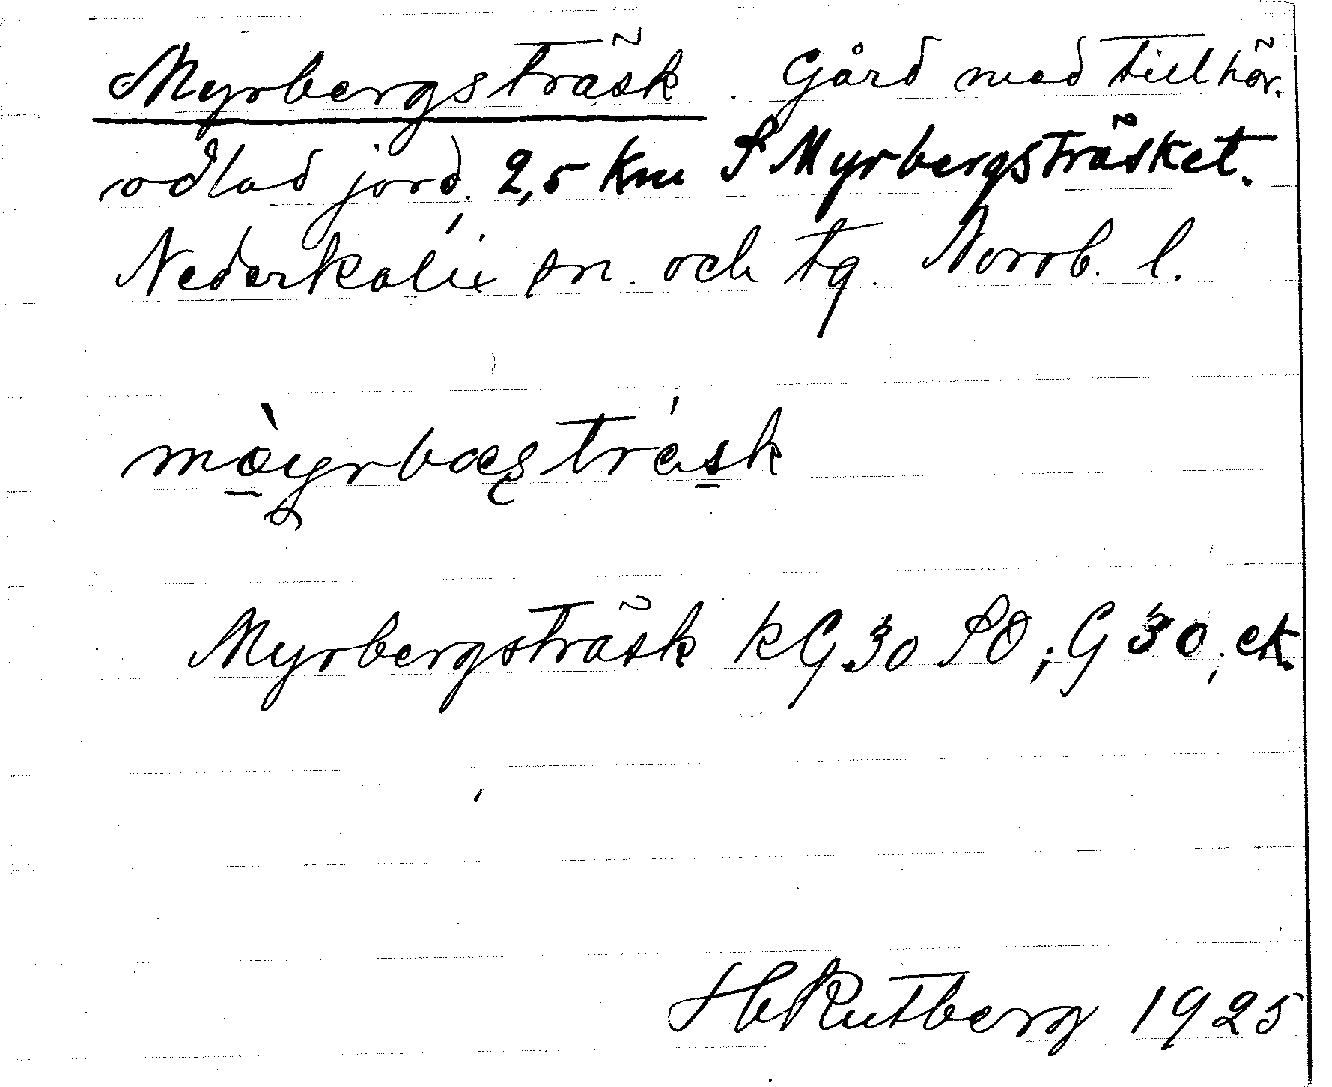 Myrbergsträsk. Gård med tillhör.
odlad jord, 2,5 km S Myrbergsträsket.
Nederkalix sn. och tg. Norrb. l.
Myrbergsträsk kG 30 SO; G 30; ek.
H Rutberg 1925